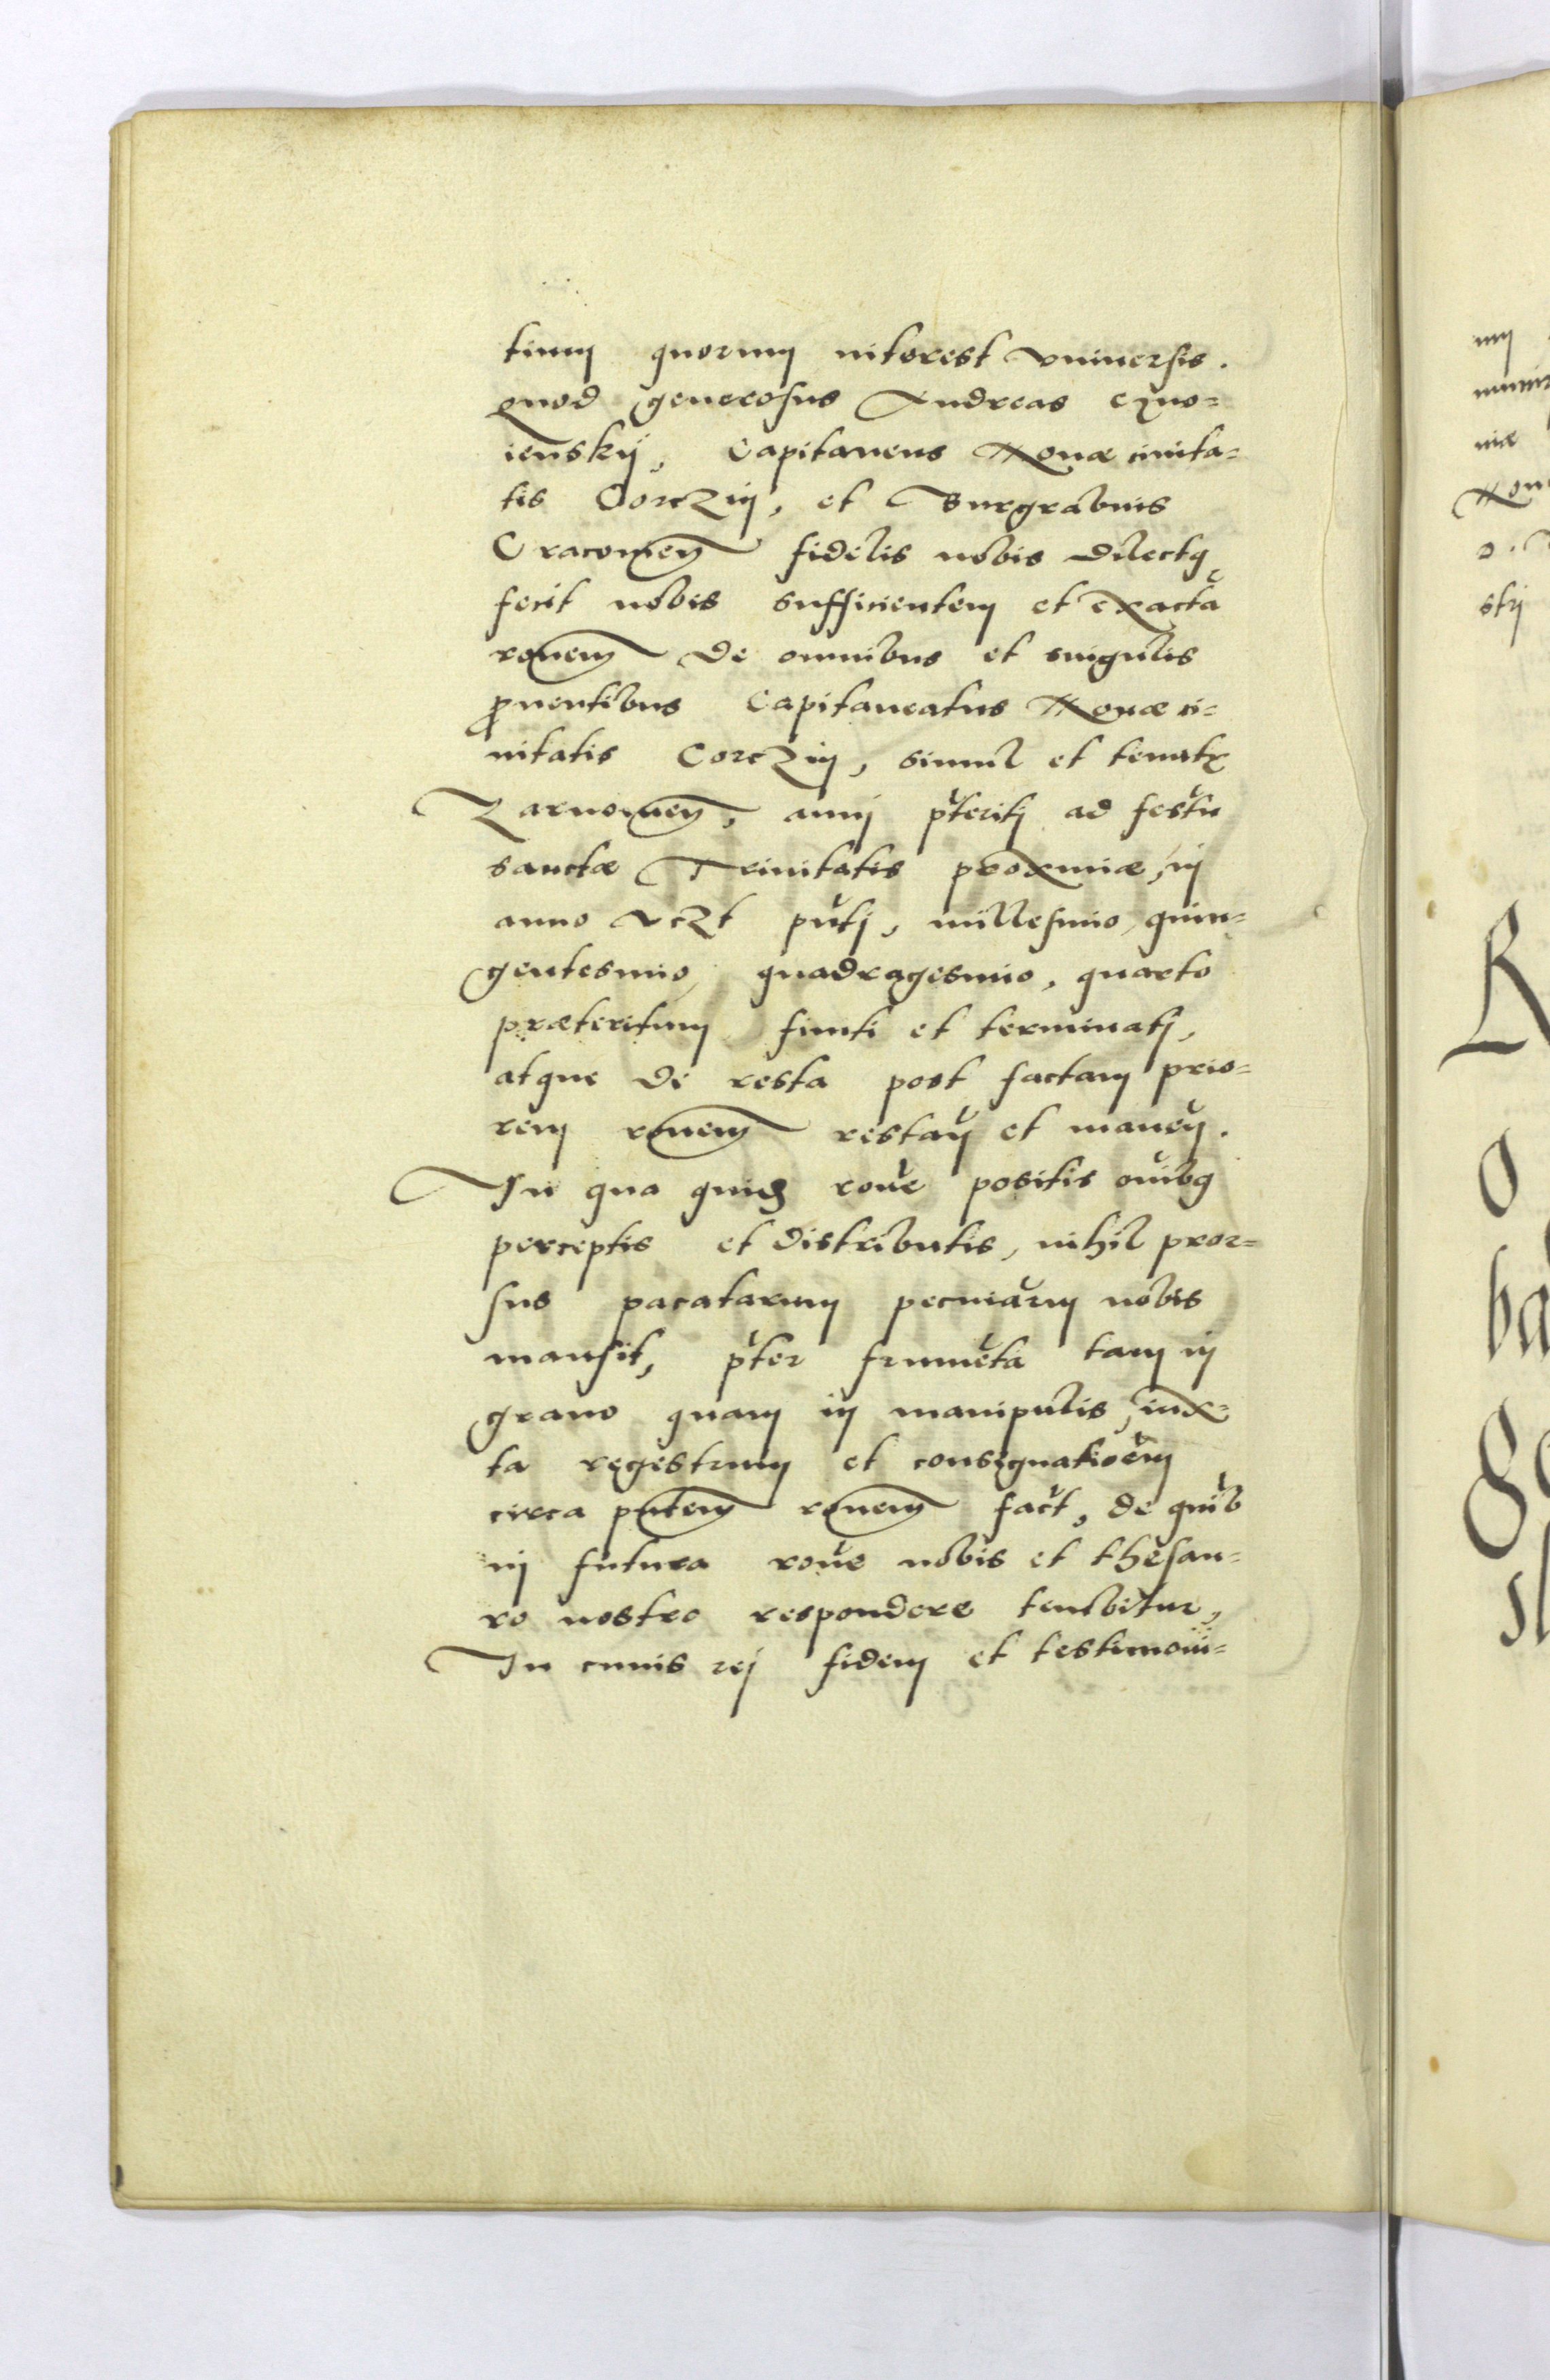 tium quorum interest vniuersis.
quod generosus Andreas
ienskij, Capitaneus Nouæ ciuita=
tis Corczin, et Burgrabius
Cracouien̄ fidelis nobis dilectꝯ
fecit nobis sufficientem et exactā
ronem de omnibus et singulis
ꝓuentibus Capitaneatus Nouæ ci=
uitatis Corczin, simul et tenutæ
Zarnowien̄, anni p̄teriti ad festū
sanctæ Trinitatis proximæ, in
anno vczt pn̄ti, millesimo, quin=
gentesimo, quadragesimo, quarto
præteritum finiti et terminati,
atque de resta post factam prio=
rem ronem restan̄ et manen̄.
In qua quidē rone positis oīnibꝯ
perceptis et distributis, nihil pror=
sus pacatarum pecuniarum nobis
mansit, p̄ter frumēta tam in
grano quam in manipulis, iux=
ta regestrum et consignatioēm
circa pn̄tem ronem fact̄, de quib
in futura rone nobis et thesau=
ro nostro respondere tenebitur,
In cuius rei fidem et testimoni=